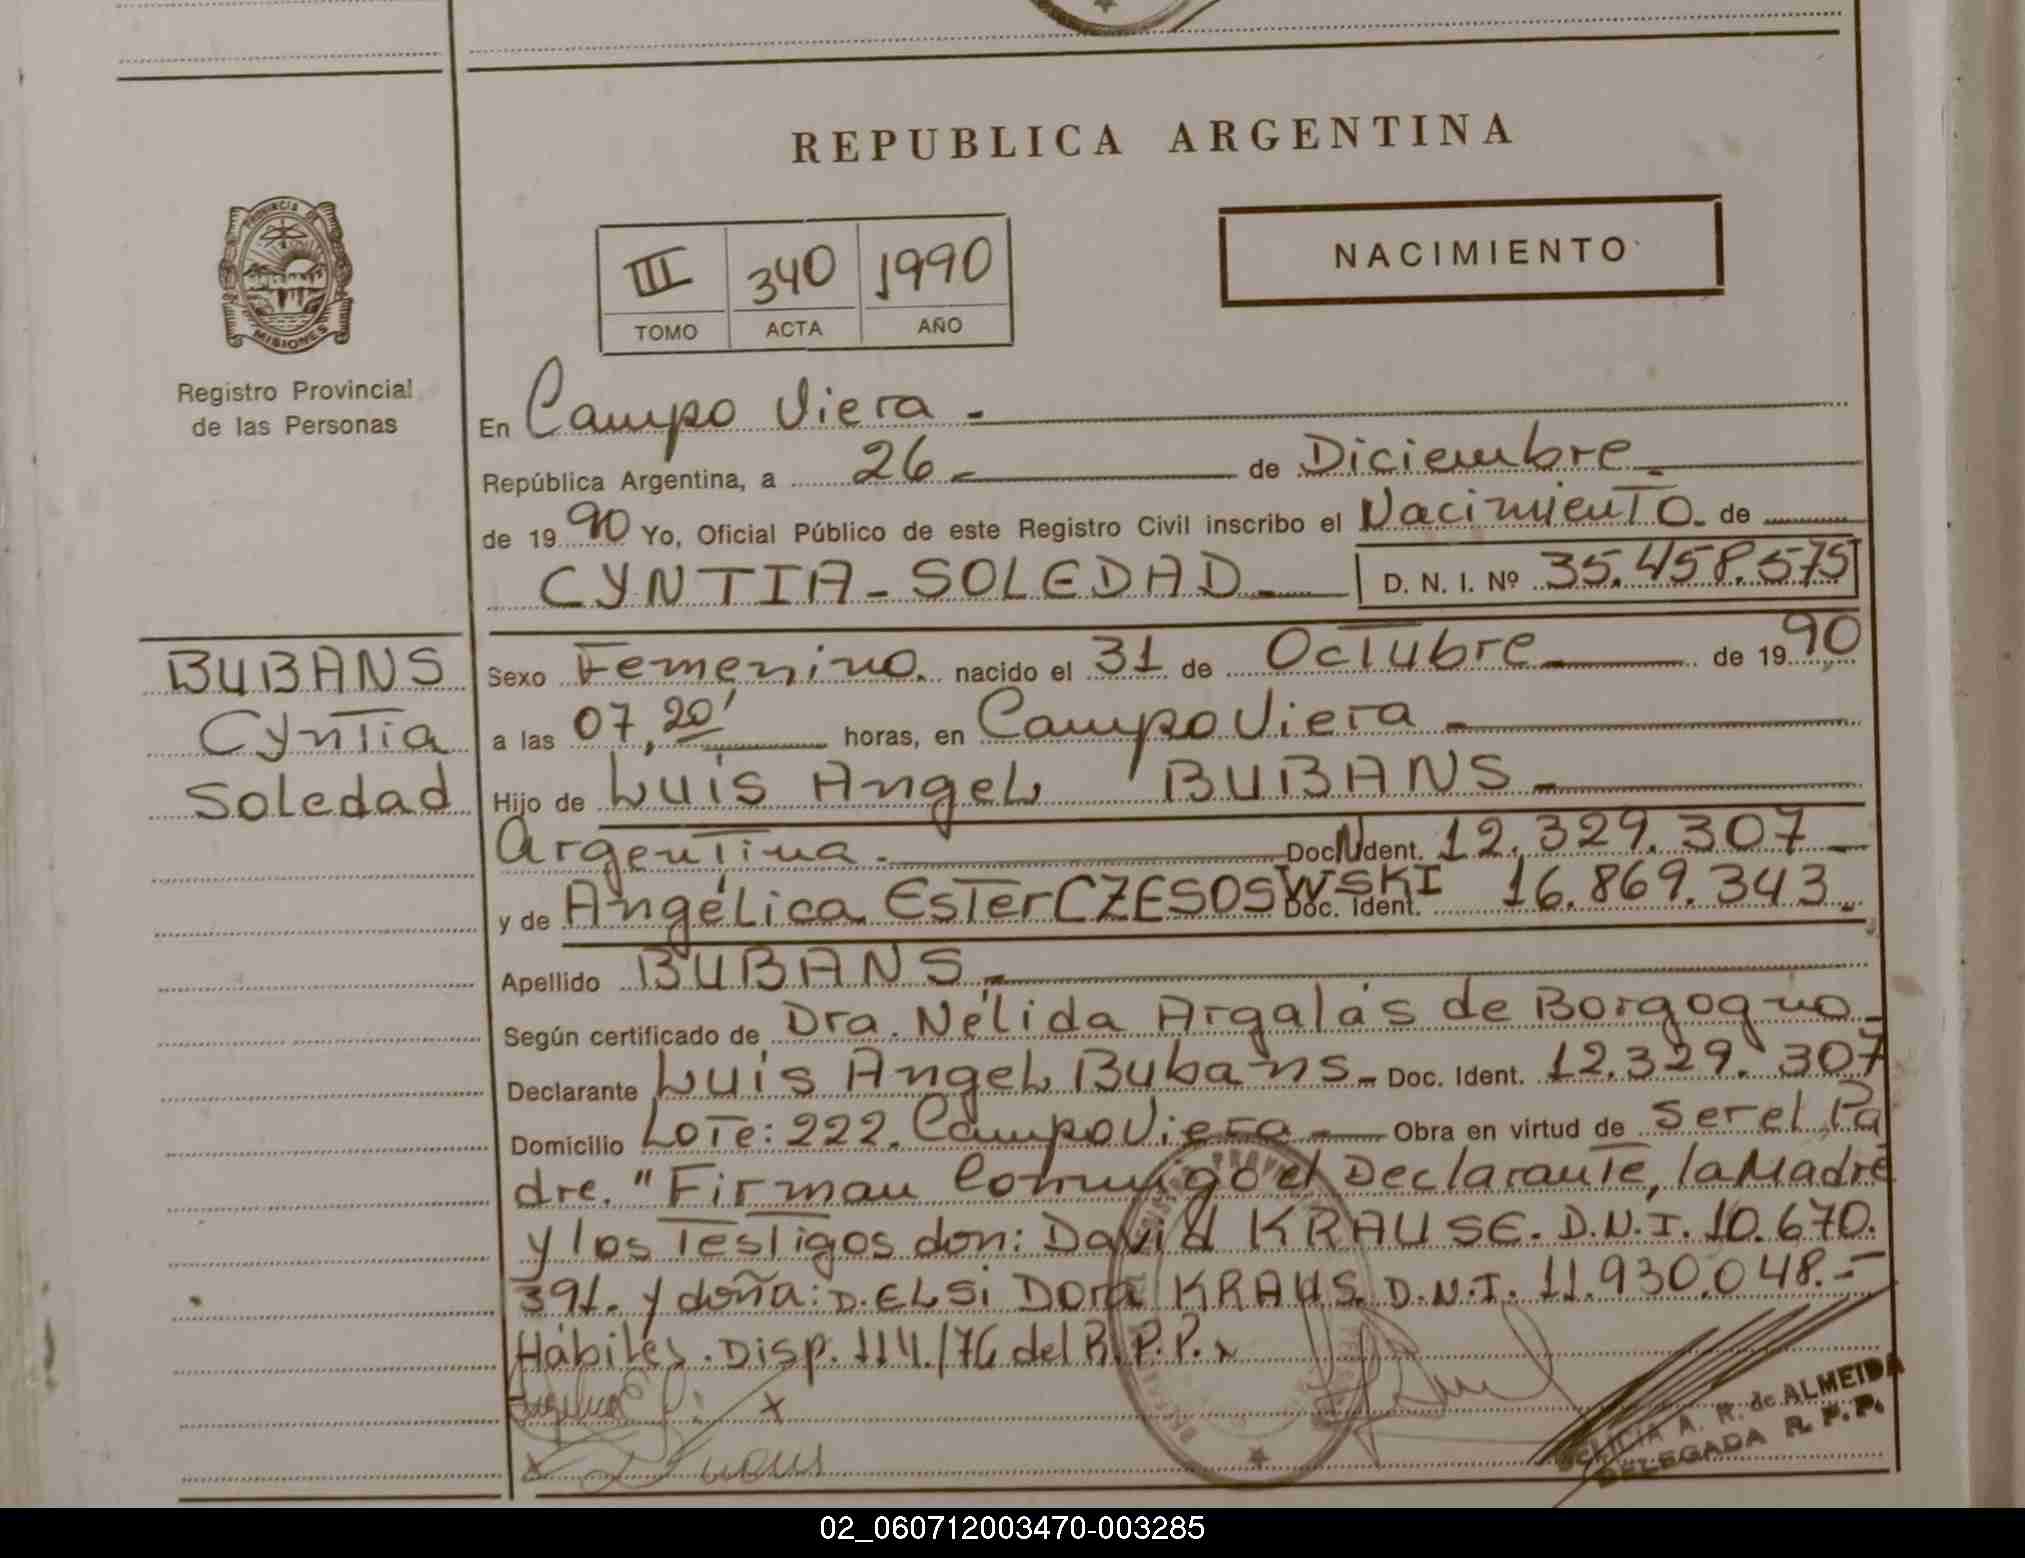 REPUBLICA ARGENTINA
PROVINCIA DE
MISIONES
Registro Provincial
de las Personas
III 340 1990
TOMO ACTA AÑO
NACIMIENTO
En Campo Viera -
República Argentina, a 26 - de Diciembre -
de 1990 Yo, Oficial Público de este Registro Civil inscribo el Nacimiento. de
CYNTIA - SOLEDAD - D. N. I. Nº 35.458.575
BUBANS
Cyntia
Soledad
Sexo Femenino. nacido el 31 de Octubre de 1990
a las 07,20' horas, en Campo Viera -
Hijo de Luis Angel BUBANS -
Argentina. Doc. Ident. 12.329.307 -
y de Angélica Ester CZESOSWSKI Doc. Ident. 16.869.343.
Apellido BUBANS -
Según certificado de Dra. Nélida Argalás de Borgogno -
Declarante Luis Angel Bubans - Doc. Ident. 12.329.307
Domicilio Lote: 222. Campo Viera - Obra en virtud de Ser el Pa
dre. "Firman Conmigo el Declarante, la Madre
y los Testigos don: David KRAUSE. D.N.I. 10.670.
391. y doña: D. ELSi Dora KRAUS. D.N.I. 11.930.048.-
Hábiles. Disp. 114./76 del R.P.P.
FELICIA A. R. de ALMEIDA
DELEGADA R. P. P.
02_060712003470-003285